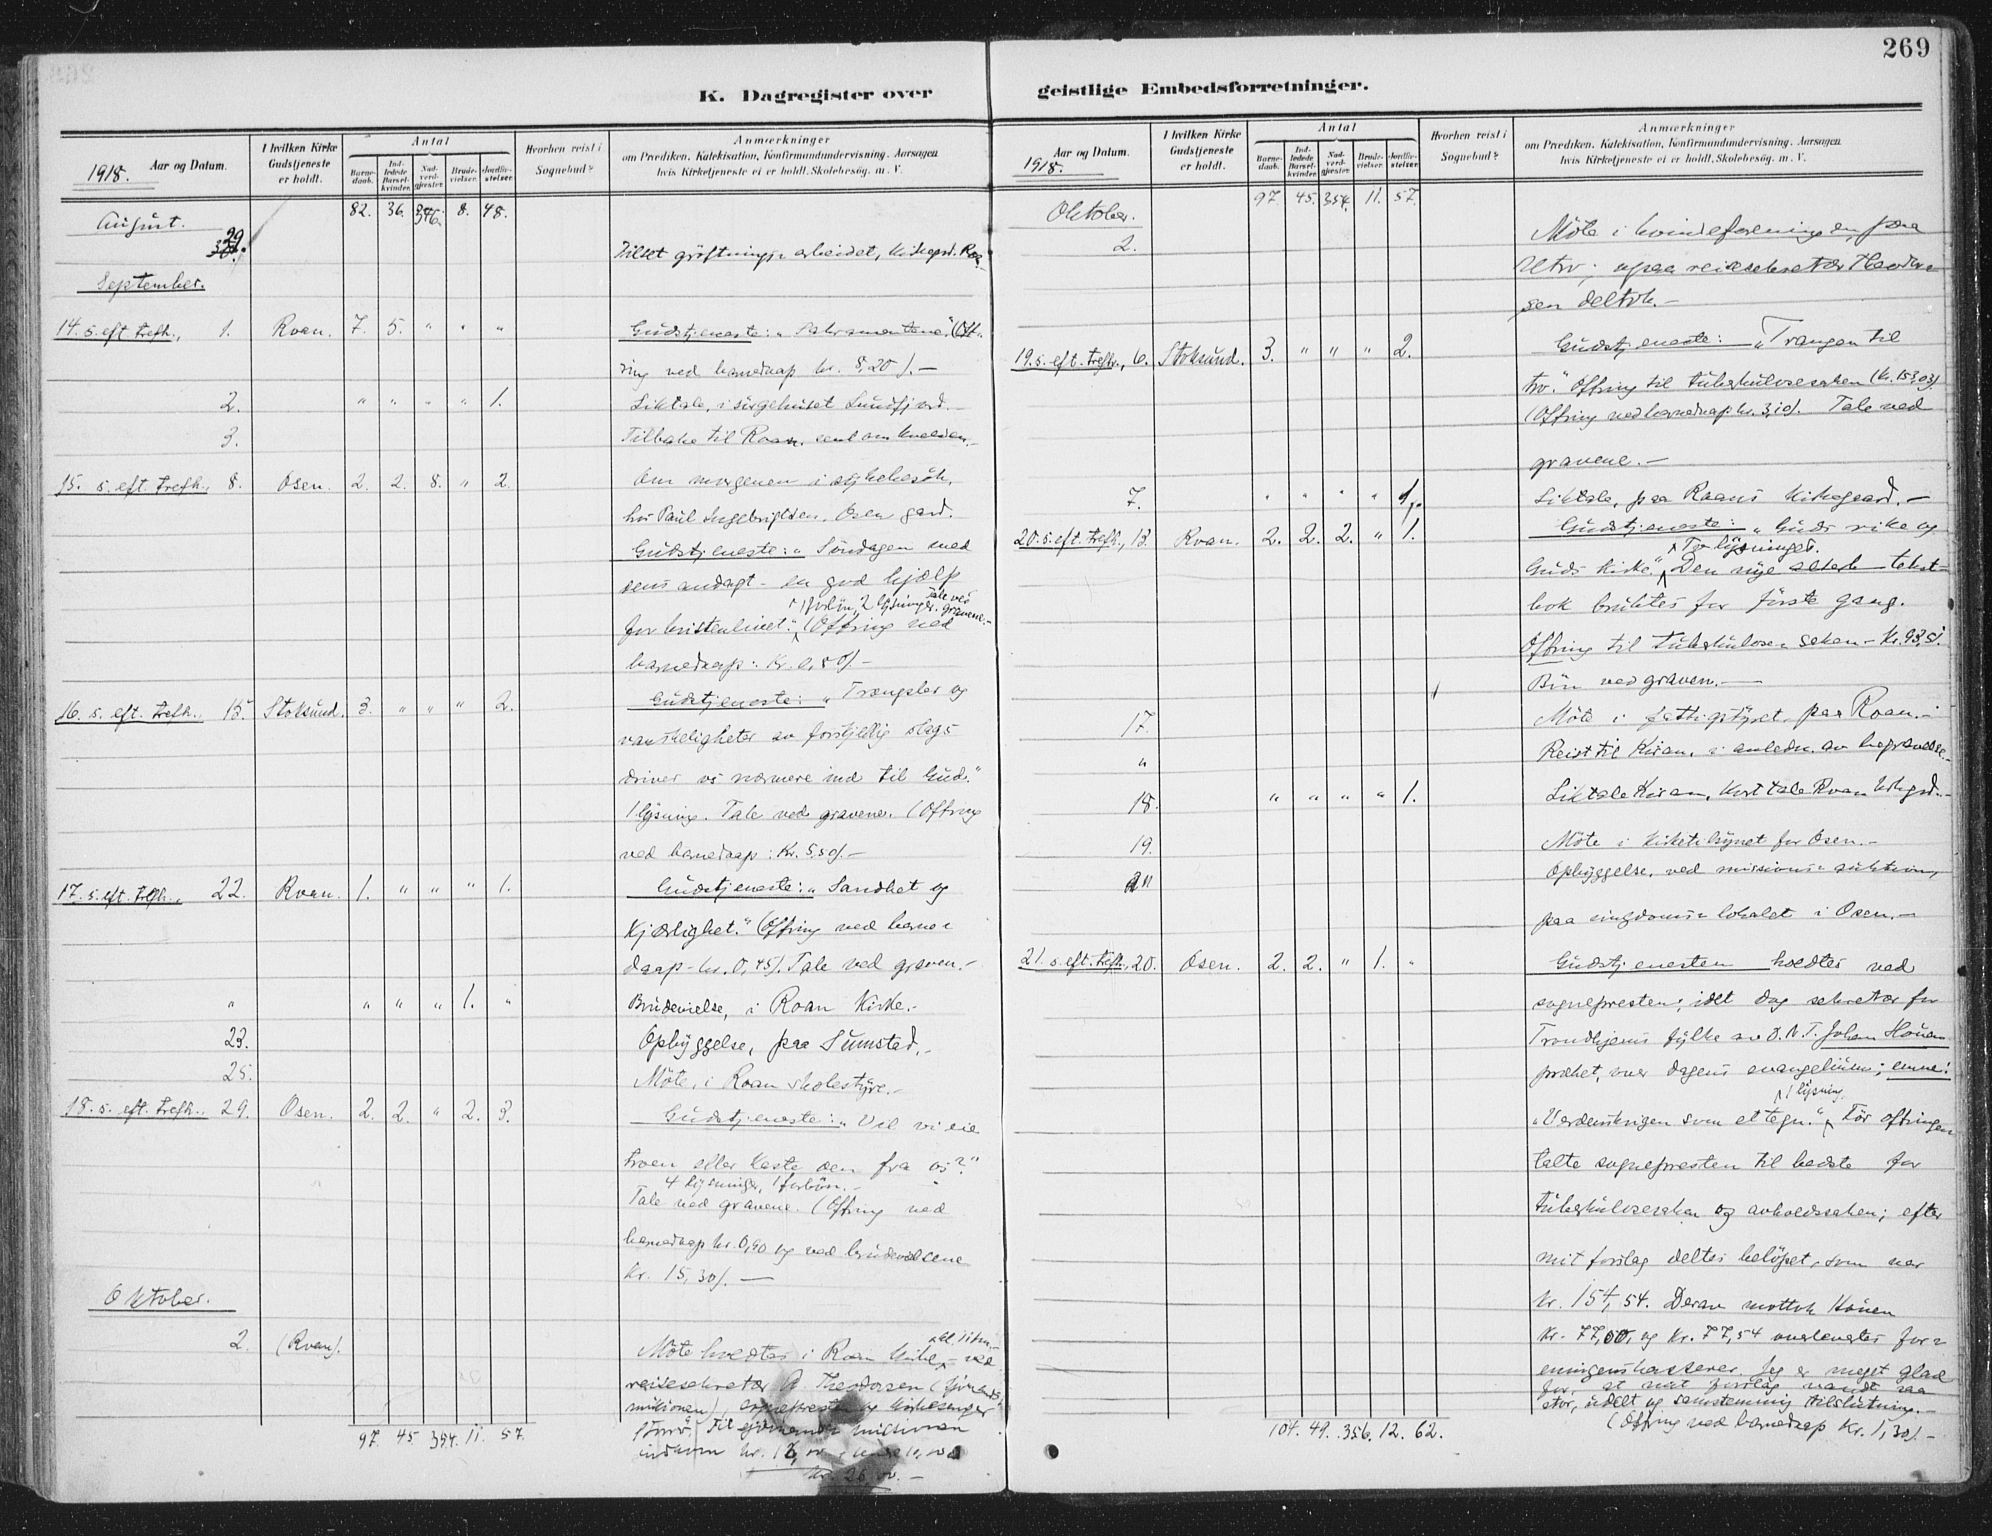 269
K. Dagregister over
1918. Aar og Datum.
I hvilken Kirke Gudstjeneste er holdt.
Antal
Barnedaab.
Indledede Barselkvinder.
Nadverdgjæster.
Brudevielser.
Jordfæstelser.
Hvorhen reist i Sognebud?
Anmærkninger
om Prædiken, Katekisation, Konfirmandundervisning, Aarsagen
hvis Kirketjeneste ei er holdt, Skolebesøg, m. V.
82. 36. 346. 8. 48.
August.
29. Tilset grøftningsarbeidet, Kirkegrd. Roa
September.
14. s. eft. trefh., 1. Roan. 7. 5. " " " Gudstjeneste: "Sakramentene." (Off-
ring ved barnedaap kr. 8,20). —
2. " " " " 1. Liktale, i sørgehuset Sundfjord. —
3. Tilbake til Roan, sent om kvelden. —
15. s. eft. trefh., 8. Osen. 2. 2. 8. " 2. Om morgenen i sykebesøk,
hos Paul Ingebrigtsen, Osen gard.
Gudstjeneste: "Søndagen med
sens andagt - en god hjælp
1 forbøn, 2 lysninger. Tale ved gravene. —
for kristenlivet." (Offring ved
barnedaap: Kr. 0,50). —
16. s. eft. trefh., 15. Stoksund. 3. " " " 2. Gudstjeneste: "Trængsler og
vanskeligheter av forskjellig slags
driver os nærmere ind til Gud."
1 lysning. Tale ved gravene. (Offring
ved barnedaap: Kr. 5,50). —
17. s. eft. trefh., 22. Roan. 1. " " " 1. Gudstjeneste: "Sandhet og
Kjærlighet." (Offring ved barne-
daap - kr. 0,45). Tale ved graven. —
" " " " 1. " Brudevielse, i Roan Kirke. —
23. Opbyggelse, paa Sumstad. —
25. Møte, i Roan skolestyre. —
18. s. eft. trefh., 29. Osen. 2. 2. " 2. 3. Gudstjeneste: "Vil vi eie
troen eller kaste den fra os?"
4 lysninger, 1 forbøn. —
Tale ved gravene. (Offring ved
barnedaap kr. 0,90 og ved brudevielsene
kr. 15,30). —
Oktober.
2. (Roan). Møte holdtes i Roan Kirke, ved
reisesekretær Theodorsen
misjonen), sognepresten og kirkesanger
kr. 26
97. 45. 354. 11. 57.
geistlige Embedsforretninger.
1918. Aar og Datum.
I hvilken Kirke Gudstjeneste er holdt.
Antal
Barnedaab.
Indledede Barselkvinder.
Nadverdgjæster.
Brudevielser.
Jordfæstelser.
Hvorhen reist i Sognebud?
Anmærkninger
om Prædiken, Katekisation, Konfirmandundervisning, Aarsagen
hvis Kirketjeneste ei er holdt, Skolebesøg, m. V.
97. 45. 354. 11. 57.
Oktober.
2. Møte i kvindeforeningen, paa
Utro; ogsaa reisesekretær Theodor-
sen deltok. —
19. s. eft. trefh., 6. Stoksund. 3. " " " 2. Gudstjeneste: "Trangen til
tro." Offring til tuberkulosesaken (kr. 15,03).
(Offring ved barnedaap kr. 3,10). Tale ved
gravene. —
7. " " " " 1. Liktale, paa Roans kirkegaard. —
20. s. eft. trefh., 13. Roan. 2. 2. 2. " 1. Gudstjeneste: "Guds rike og
To lysninger.
Guds Kirke." Den nye alterb tekst-
bok bruktes for første gang.
Offring til tuberkulosesaken - kr. 93,51.
Bøn ved graven. —
17. Møte i fattigstyret, paa Roan. —
" Reist til Kiran, i anledn. av begravelse. —
18. " " " " 1. Liktale Kiran, Kort tale Roan kirkegrd. —
19. Møte i kirketilsynet for Osen. —
" Opbyggelse, ved missions-auktion,
paa ungdoms-lokalet i Osen. —
21. s. eft. trefh., 20. Osen. 2. 2. " 1. " Gudstjenesten holdtes ved
sognepresten; idet dog sekretær for
Trondhjems fylke av D.N.T. Johan Houen
præket, over dagens evangelium; emne:
1 lysning.
"Verdenskrigen som et tegn." Før offringen
talte sognepresten til bedste for
tuberkulosesaken og avholdssaken; efter
mit forslag deltes beløpet, som var
kr. 154,54. Derav mottok Houen
kr. 77,00, og kr. 77,54 overlevertes for-
eningens kasserer. Jeg er meget glad
for, at mit forslag vandt saa
stor, udelt og samstemmig tilslutning. —
(Offring ved barnedaap Kr. 1,30). —
104. 49. 356. 12. 62.